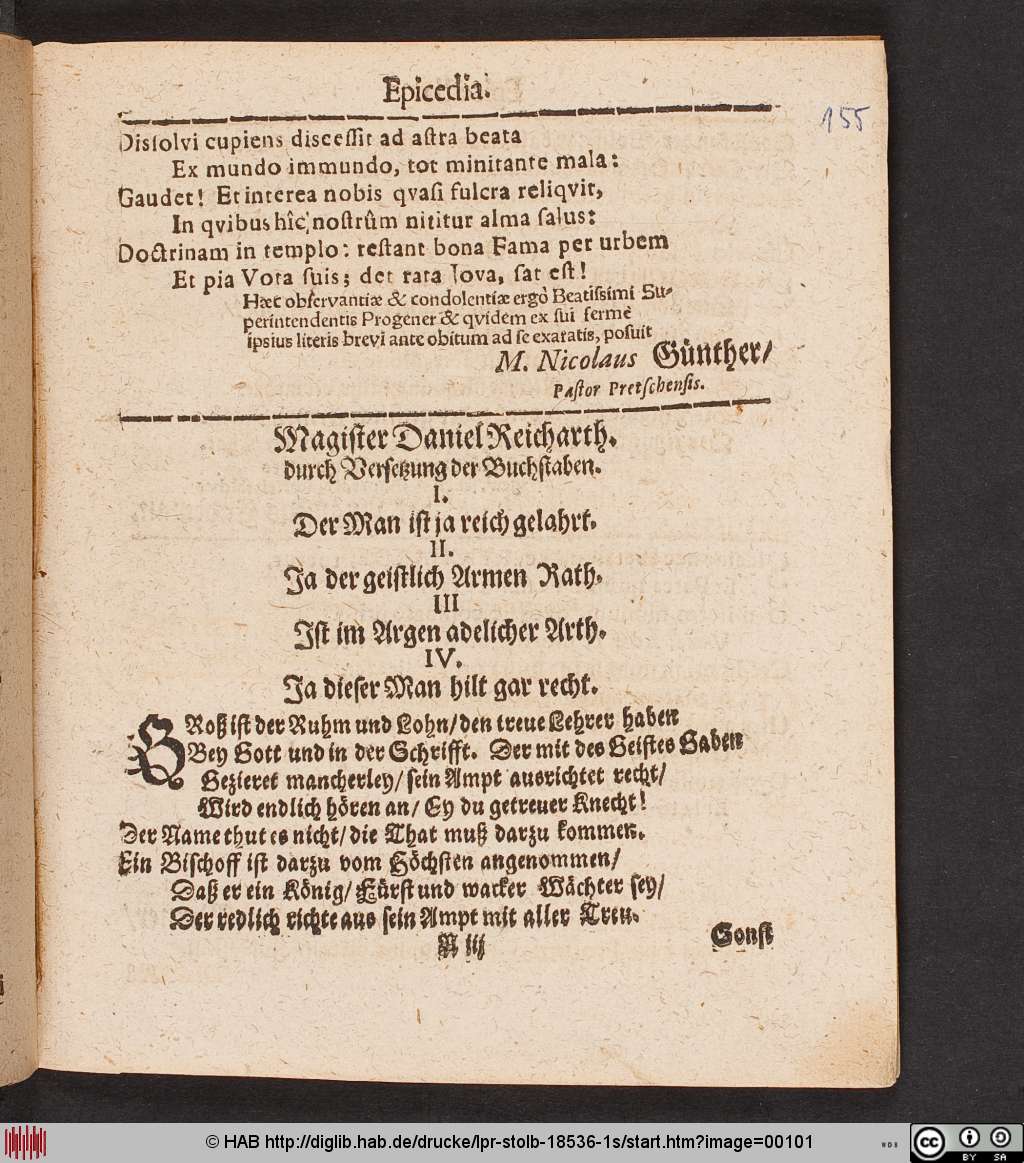 Epicedia.
155
Dissolvi cupiens discessit ad astra beata
Ex mundo immundo, tot minitante mala:
Gaudet! Et interea nobis qvasi fulcra reliqvit,
In qvibus hîc nostrûm nititur alma salus:
Doctrinam in templo: restant bona Fama per urbem
Et pia Vota suis; det rata Jova, sat est!
Hæc observantiæ & condolentiæ ergò Beatissimi Su-
perintendentis Progener & qvidem ex sui fermè
ipsius literis brevi ante obitum ad se exaratis, posuit
M. Nicolaus Günther/
Pastor Pretschensis.
Magister Daniel Reicharth.
durch Versetzung der Buchstaben.
I.
Der Man ist ja reich gelahrt.
II.
Ja der geistlich Armen Rath.
III
Ist im Argen adelicher Arth.
IV.
Ja dieser Man hilt gar recht.
GRoß ist der Ruhm und Lohn/ den treue Lehrer haben
Bey Gott und in der Schrifft. Der mit des Geistes Gaben
Gezieret mancherley/ sein Ampt ausrichtet recht/
Wird endlich hören an/ Ey du getreuer Knecht!
Der Name thut es nicht/ die That muß darzu kommen.
Ein Bischoff ist darzu vom Höchsten angenommen/
Daß er ein König/ Fürst und wacker Wächter sey/
Der redlich richte aus sein Ampt mit aller Treu.
N iij
Sonst
© HAB http://diglib.hab.de/drucke/lpr-stolb-18536-1s/start.htm?image=00101
WDB
cc BY SA